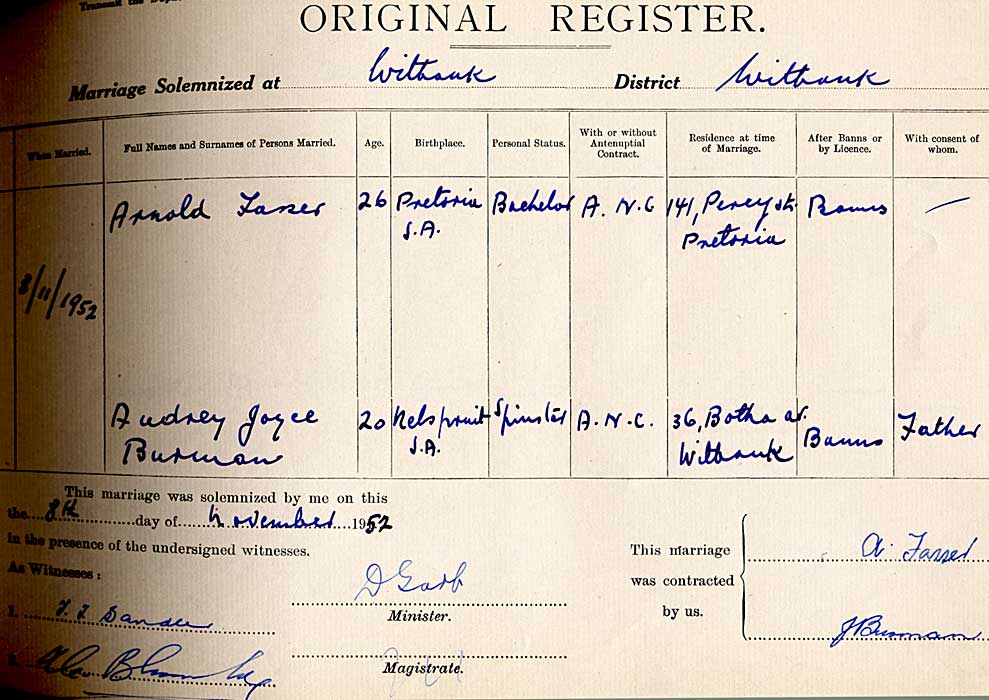 ORIGINAL REGISTER.
Marriage Solemnized at Witbank District Witbank
When Married. Full Names and Surnames of Persons Married. Age. Birthplace. Personal Status. With or without Antenuptial Contract. Residence at time of Marriage. After Banns or by Licence. With consent of whom.
Arnold 26 Pretoria Bachelor A.N.C 141, Percy st. Banns —
S.A. Pretoria
8/11/1952
Audrey Joyce 20 Nelspruit Spinster A.N.C. 36, Botha av. Banns Father
Burman S.A. Witbank
This marriage was solemnized by me on this
the 8th day of November 1952
in the presence of the undersigned witnesses.
As Witnesses:
D Garb
Minister.
1.
2.
Magistrate.
This marriage
was contracted
by us.
A.
J Burman